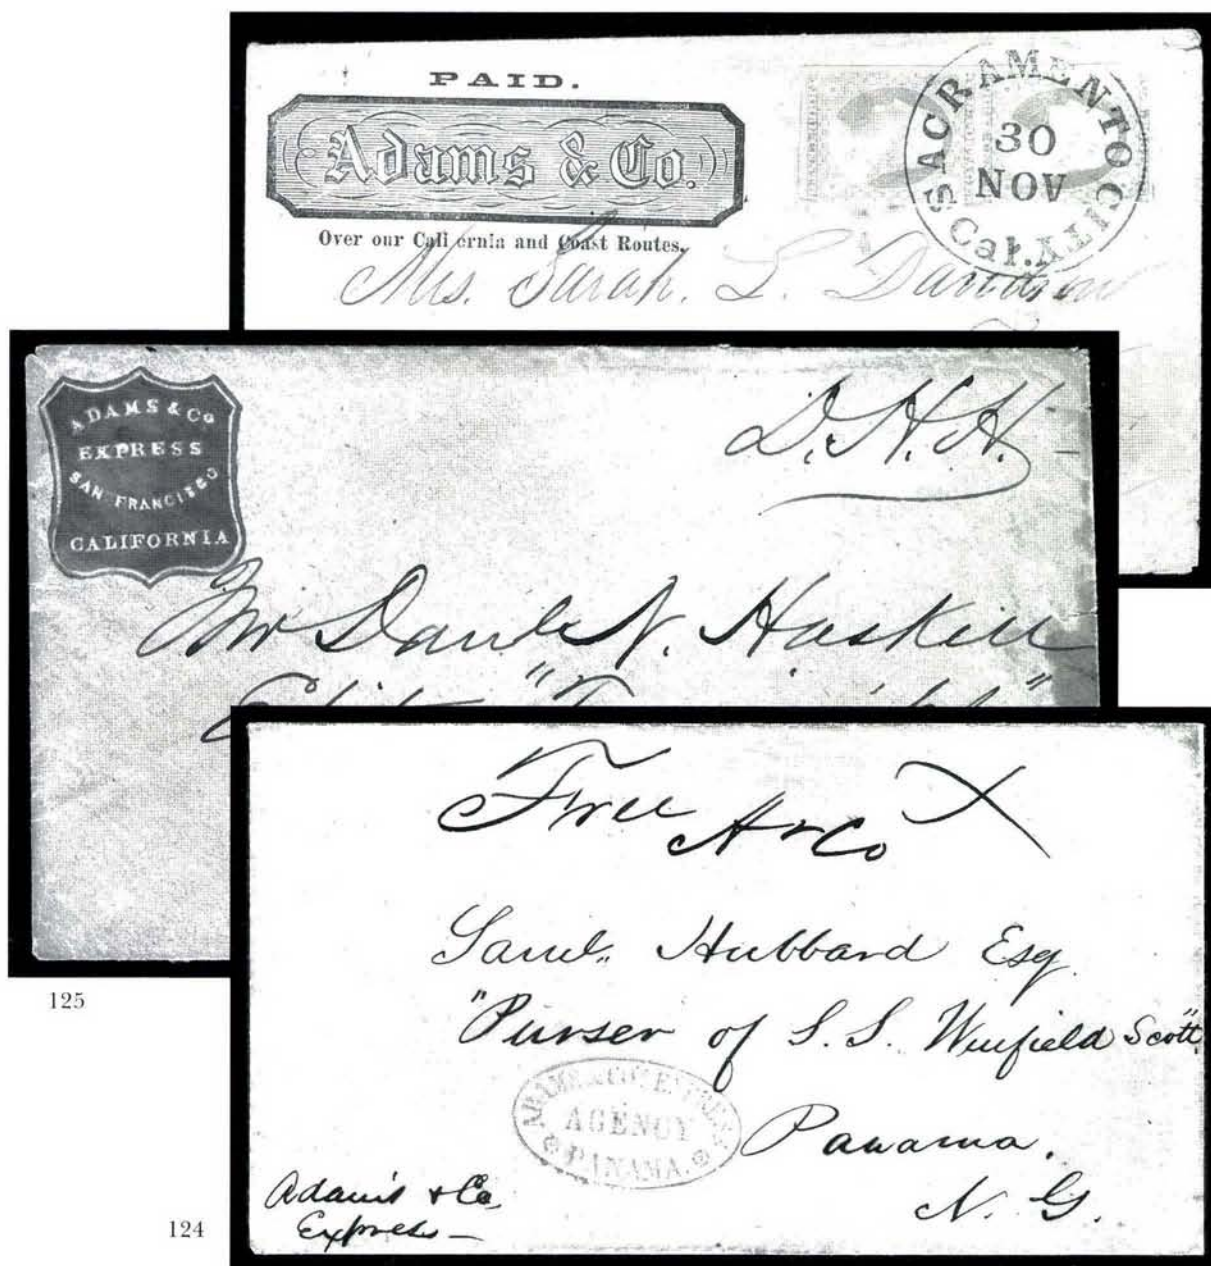 PAID.
Adams & Co.
Over our Cali ernia and Coast Routes.
SACRAMENTO CITY
30
NOV
Cal.
Mrs. Sarah. L. Davidson
ADAMS & Co
EXPRESS
SAN FRANCISCO
CALIFORNIA
D. N. H.
Mr Danl. N. Haskell
125
Free A & Co X
Saml. Hubbard Esq
"Purser of S. S. Winfield Scott"
ADAMS & CO. EXPRESS
AGENCY
PANAMA.
Panama.
N. G.
Adams & Co.
Express —
124